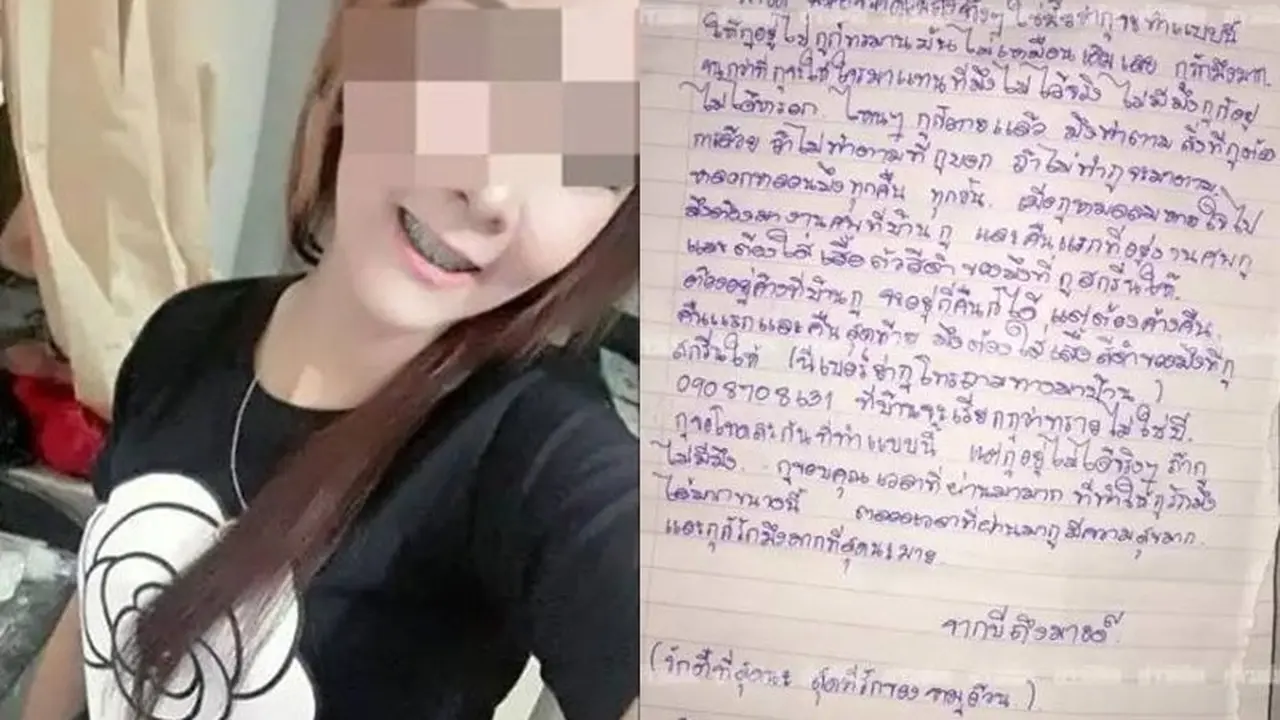 ให้กูอยู่ไป กูก็ทรมาน มันไม่เหมือนเดิมเลย กูรักมึงมาก
จนกว่าที่กูจะใช้ใครมาแทนที่มึงไม่ได้จริง ไม่มีมึงกูก็อยู่
ไม่ได้หรอก ไหนๆ กูก็ตายแล้ว มึงทำตามสิ่งที่กูต้อง
การด้วย ถ้าไม่ทำตามที่กูบอก ถ้าไม่ทำกูจะมาตาม
หลอกหลอนมึงทุกคืน ทุกวัน เมื่อกูหมดลมหายใจไป
มึงต้องมางานศพที่บ้านกู และคืนแรกที่อยู่งานศพกู
และต้องใส่เสื้อตัวสีดำของมึงที่กูสกรีนให้
ต้องอยู่ค้างที่บ้านกู จะอยู่กี่คืนก็ได้ แต่ต้องค้างคืน
คืนแรกและคืนสุดท้าย มึงต้องใส่เสื้อสีดำของมึงที่กู
สกรีนให้ (นี่เบอร์ย่ากูโทรถามทางมาบ้าน)
0908708631 ที่บ้านจะเรียกกูว่าทราย ไม่ใช่บี
กูขอโทษละกันที่ทำแบบนี้ แต่กูอยู่ไม่ได้จริงๆ ถ้ากู
ไม่มีมึง กูขอบคุณเวลาที่ผ่านมามาก ที่ทำให้กูรักมึง
ได้มากขนาดนี้ ตลอดเวลาที่ผ่านมากูมีความสุขมาก
และกูก็รักมึงมากที่สุดนะมาย
จากบีถึงมายด์
(รักดีที่สุดนะ สุดที่รักของหมูอ้วน)